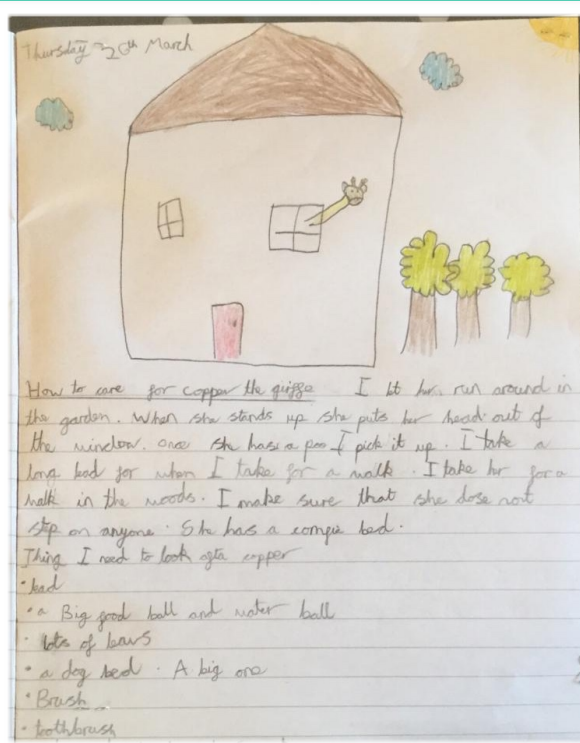 Thursday 26th March
How to care for copper the giraffe I let her run around in
the garden. When she stands up she puts her head out of
the window. once she has a poo I pick it up. I take a
long lead for when I take for a walk. I take her for a
walk in the woods. I make sure that she dose not
step on anyone. She has a comfie bed.
Thing I need to look afta copper
• lead
• a Big food ball and water ball
• lots of leavs
• a dog bed. A big one
• Brush
• toothbrush